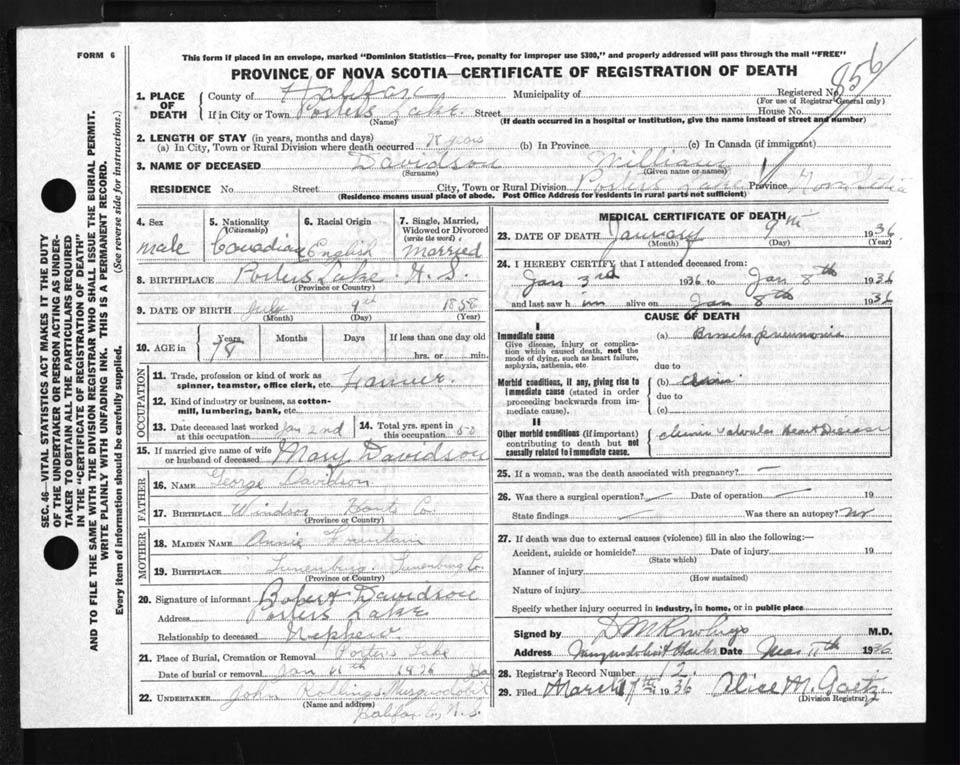 FORM 6
This form if placed in an envelope, marked "Dominion Statistics—Free, penalty for improper use $300," and properly addressed will pass through the mail "FREE"
PROVINCE OF NOVA SCOTIA—CERTIFICATE OF REGISTRATION OF DEATH
856
SEC. 46—VITAL STATISTICS ACT MAKES IT THE DUTY
OF THE UNDERTAKER OR PERSON ACTING AS UNDER-
TAKER TO OBTAIN ALL THE PARTICULARS REQUIRED
IN THE "CERTIFICATE OF REGISTRATION OF DEATH"
AND TO FILE THE SAME WITH THE DIVISION REGISTRAR WHO SHALL ISSUE THE BURIAL PERMIT.
WRITE PLAINLY WITH UNFADING INK. THIS IS A PERMANENT RECORD.
Every item of information should be carefully supplied. (See reverse side for instructions.)
1. PLACE OF DEATH County of Halifax Municipality of Registered No.
(For use of Registrar General only)
If in City or Town Porters Lake Street House No.
(Name) (If death occurred in a hospital or institution, give the name instead of street and number)
2. LENGTH OF STAY (in years, months and days)
(a) In City, Town or Rural Division where death occurred 78 years (b) In Province (c) In Canada (if immigrant)
3. NAME OF DECEASED Davidson William
(Surname) (Given name or names)
RESIDENCE No. Street City, Town or Rural Division Porters Lake Province Nova Scotia
(Residence means usual place of abode. Post Office Address for residents in rural parts not sufficient)
4. Sex male
5. Nationality (Citizenship) Canadian
6. Racial Origin English
7. Single, Married, Widowed or Divorced (write the word) Married
8. BIRTHPLACE Porters Lake N. S.
(Province or Country)
9. DATE OF BIRTH July 9th 1858
(Month) (Day) (Year)
10. AGE in Years Months Days If less than one day old
78 hrs. or min.
OCCUPATION
11. Trade, profession or kind of work as spinner, teamster, office clerk, etc. Farmer.
12. Kind of industry or business, as cotton-mill, lumbering, bank, etc.
13. Date deceased last worked at this occupation Jan 2nd
14. Total yrs. spent in this occupation 50
15. If married give name of wife or husband of deceased Mary Davidson
FATHER
16. NAME George Davidson
17. BIRTHPLACE Windsor Hants Co.
(Province or Country)
MOTHER
18. MAIDEN NAME Annie Fountain
19. BIRTHPLACE Lunenburg. Lunenburg Co.
(Province or Country)
20. Signature of informant Robert Davidson
Address Porters Lake
Relationship to deceased Nephew.
21. Place of Burial, Cremation or Removal Porters Lake
Date of burial or removal Jan 11th 1936
22. UNDERTAKER John Rollings Musquodoboit
(Name and address) Halifax Co, N. S.
MEDICAL CERTIFICATE OF DEATH
23. DATE OF DEATH January 9th 1936
(Month) (Day) (Year)
24. I HEREBY CERTIFY, that I attended deceased from:
Jan 3rd 1936 to Jan 8th 1936
and last saw him alive on Jan 8th 1936
CAUSE OF DEATH
I
Immediate cause (a) Broncho pneumonia
Give disease, injury or complica-
tion which caused death, not the
mode of dying, such as heart failure,
asphyxia, asthenia, etc. due to
Morbid conditions, if any, giving rise to (b)
immediate cause (stated in order due to
proceeding backwards from im-
mediate cause). (c)
II
Other morbid conditions (if important) Chronic valvular Heart Disease
contributing to death but not
causally related to immediate cause.
25. If a woman, was the death associated with pregnancy? —
26. Was there a surgical operation? — Date of operation — 19
State findings — Was there an autopsy? no
27. If death was due to external causes (violence) fill in also the following:—
Accident, suicide or homicide? Date of injury 19
(State which)
Manner of injury
(How sustained)
Nature of injury
Specify whether injury occurred in industry, in home, or in public place
Signed by D M Rowlings M.D.
Address Musquodoboit Harbor Date Mar 11th 1936
28. Registrar's Record Number 12.
29. Filed March 17th 1936 Alice M. Gaetz
(Division Registrar)